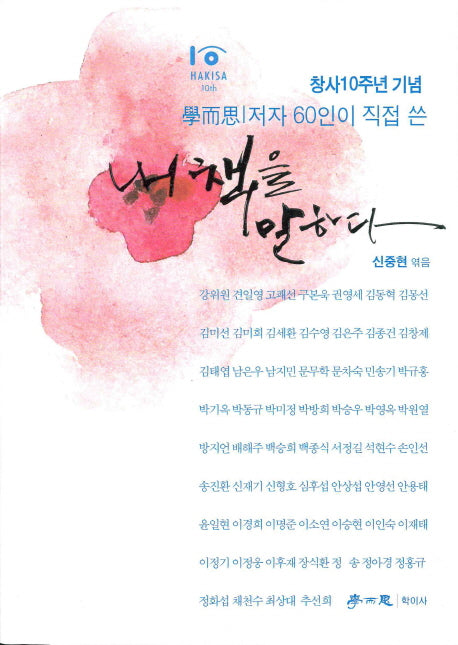 10
HAKISA
10th
창사10주년 기념
學而思 | 저자 60인이 직접 쓴
내 책을
말하다
신중현 엮음
강위원 견일영 고쾌선 구본욱 권영세 김동혁 김몽선
김미선 김미희 김세환 김수영 김은주 김종건 김창제
김태엽 남은우 남지민 문무학 문차숙 민송기 박규홍
박기옥 박동규 박미정 박방희 박승우 박영옥 박원열
방지언 배해주 백승희 백종식 서정길 석현수 손인선
송진환 신재기 신형호 심후섭 안상섭 안영선 안용태
윤일현 이경희 이명준 이소연 이승현 이인숙 이재태
이정기 이정웅 이후재 장식환 정 송 정아경 정홍규
정화섭 채천수 최상대 추선희 學而思 | 학이사